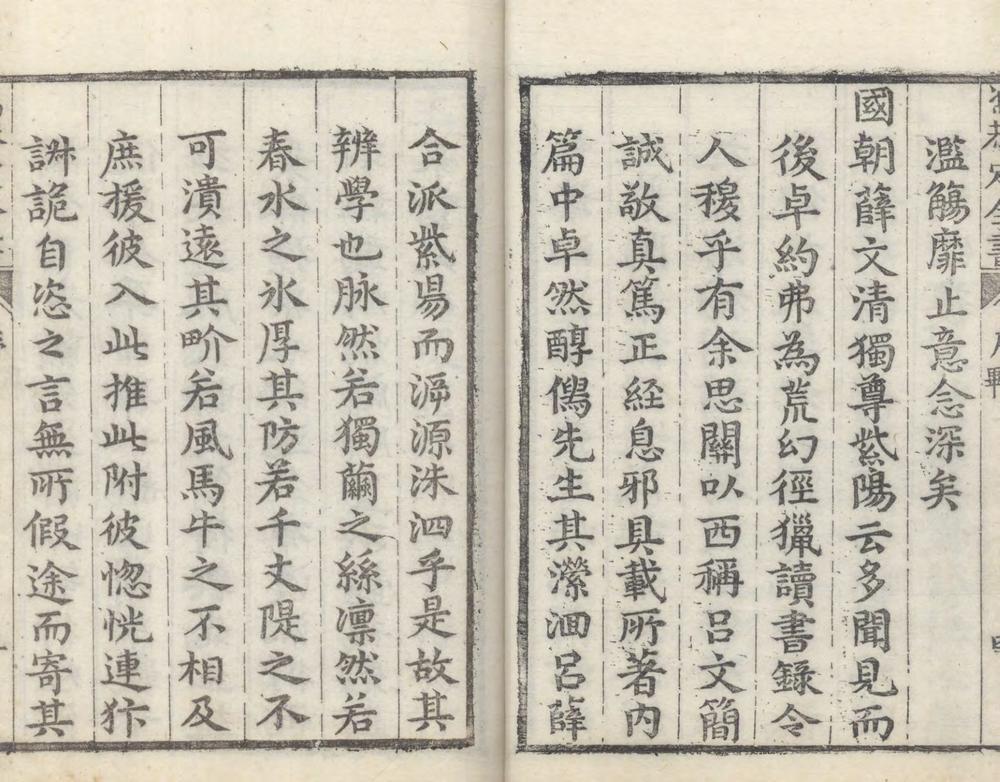 濫觴靡止意念深矣
國朝薛文清獨尊紫陽云多聞見而
後卓約弗為荒幻徑獵讀書錄令
人穆乎有余思關以西稱呂文簡
誠敬真篤正経息邪具載所著内
篇中卓然醇儒先生其瀠洄呂薛
合派紫昜而泝源洙泗乎是故其
辨學也脉然若獨繭之絲凛然若
春水之氷厚其防若千丈隄之不
可潰遠其畍若風馬牛之不相及
庶援彼入此推此附彼惚恍連犿
諔詭自恣之言無所假途而寄其